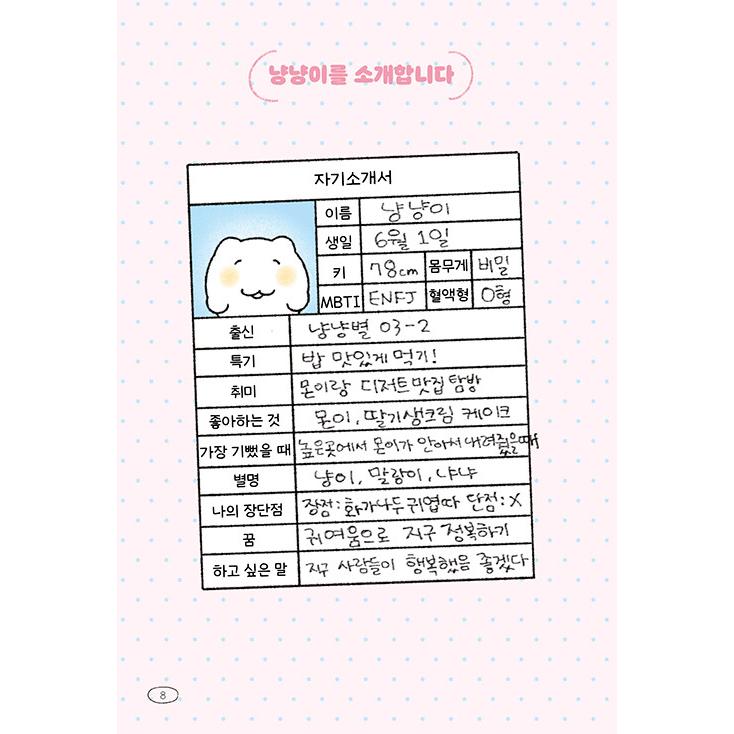 냥냥이를 소개합니다
자기소개서
이름 냥냥이
생일 6월 1일
키 78cm 몸무게 비밀
MBTI ENFJ 혈액형 O형
출신 냥냥별 03-2
특기 밥 맛있게 먹기!
취미 몬이랑 디저트 맛집 탐방
좋아하는 것 몬이, 딸기생크림 케이크
가장 기뻤을 때 높은곳에서 몬이가 안아서 내려줬을때
별명 냥이, 말랑이, 냐냐
나의 장단점 장점:화가나두 귀엽따 단점:X
꿈 귀여움으로 지구 정복하기
하고 싶은 말 지구 사람들이 행복했음 좋겠다
8